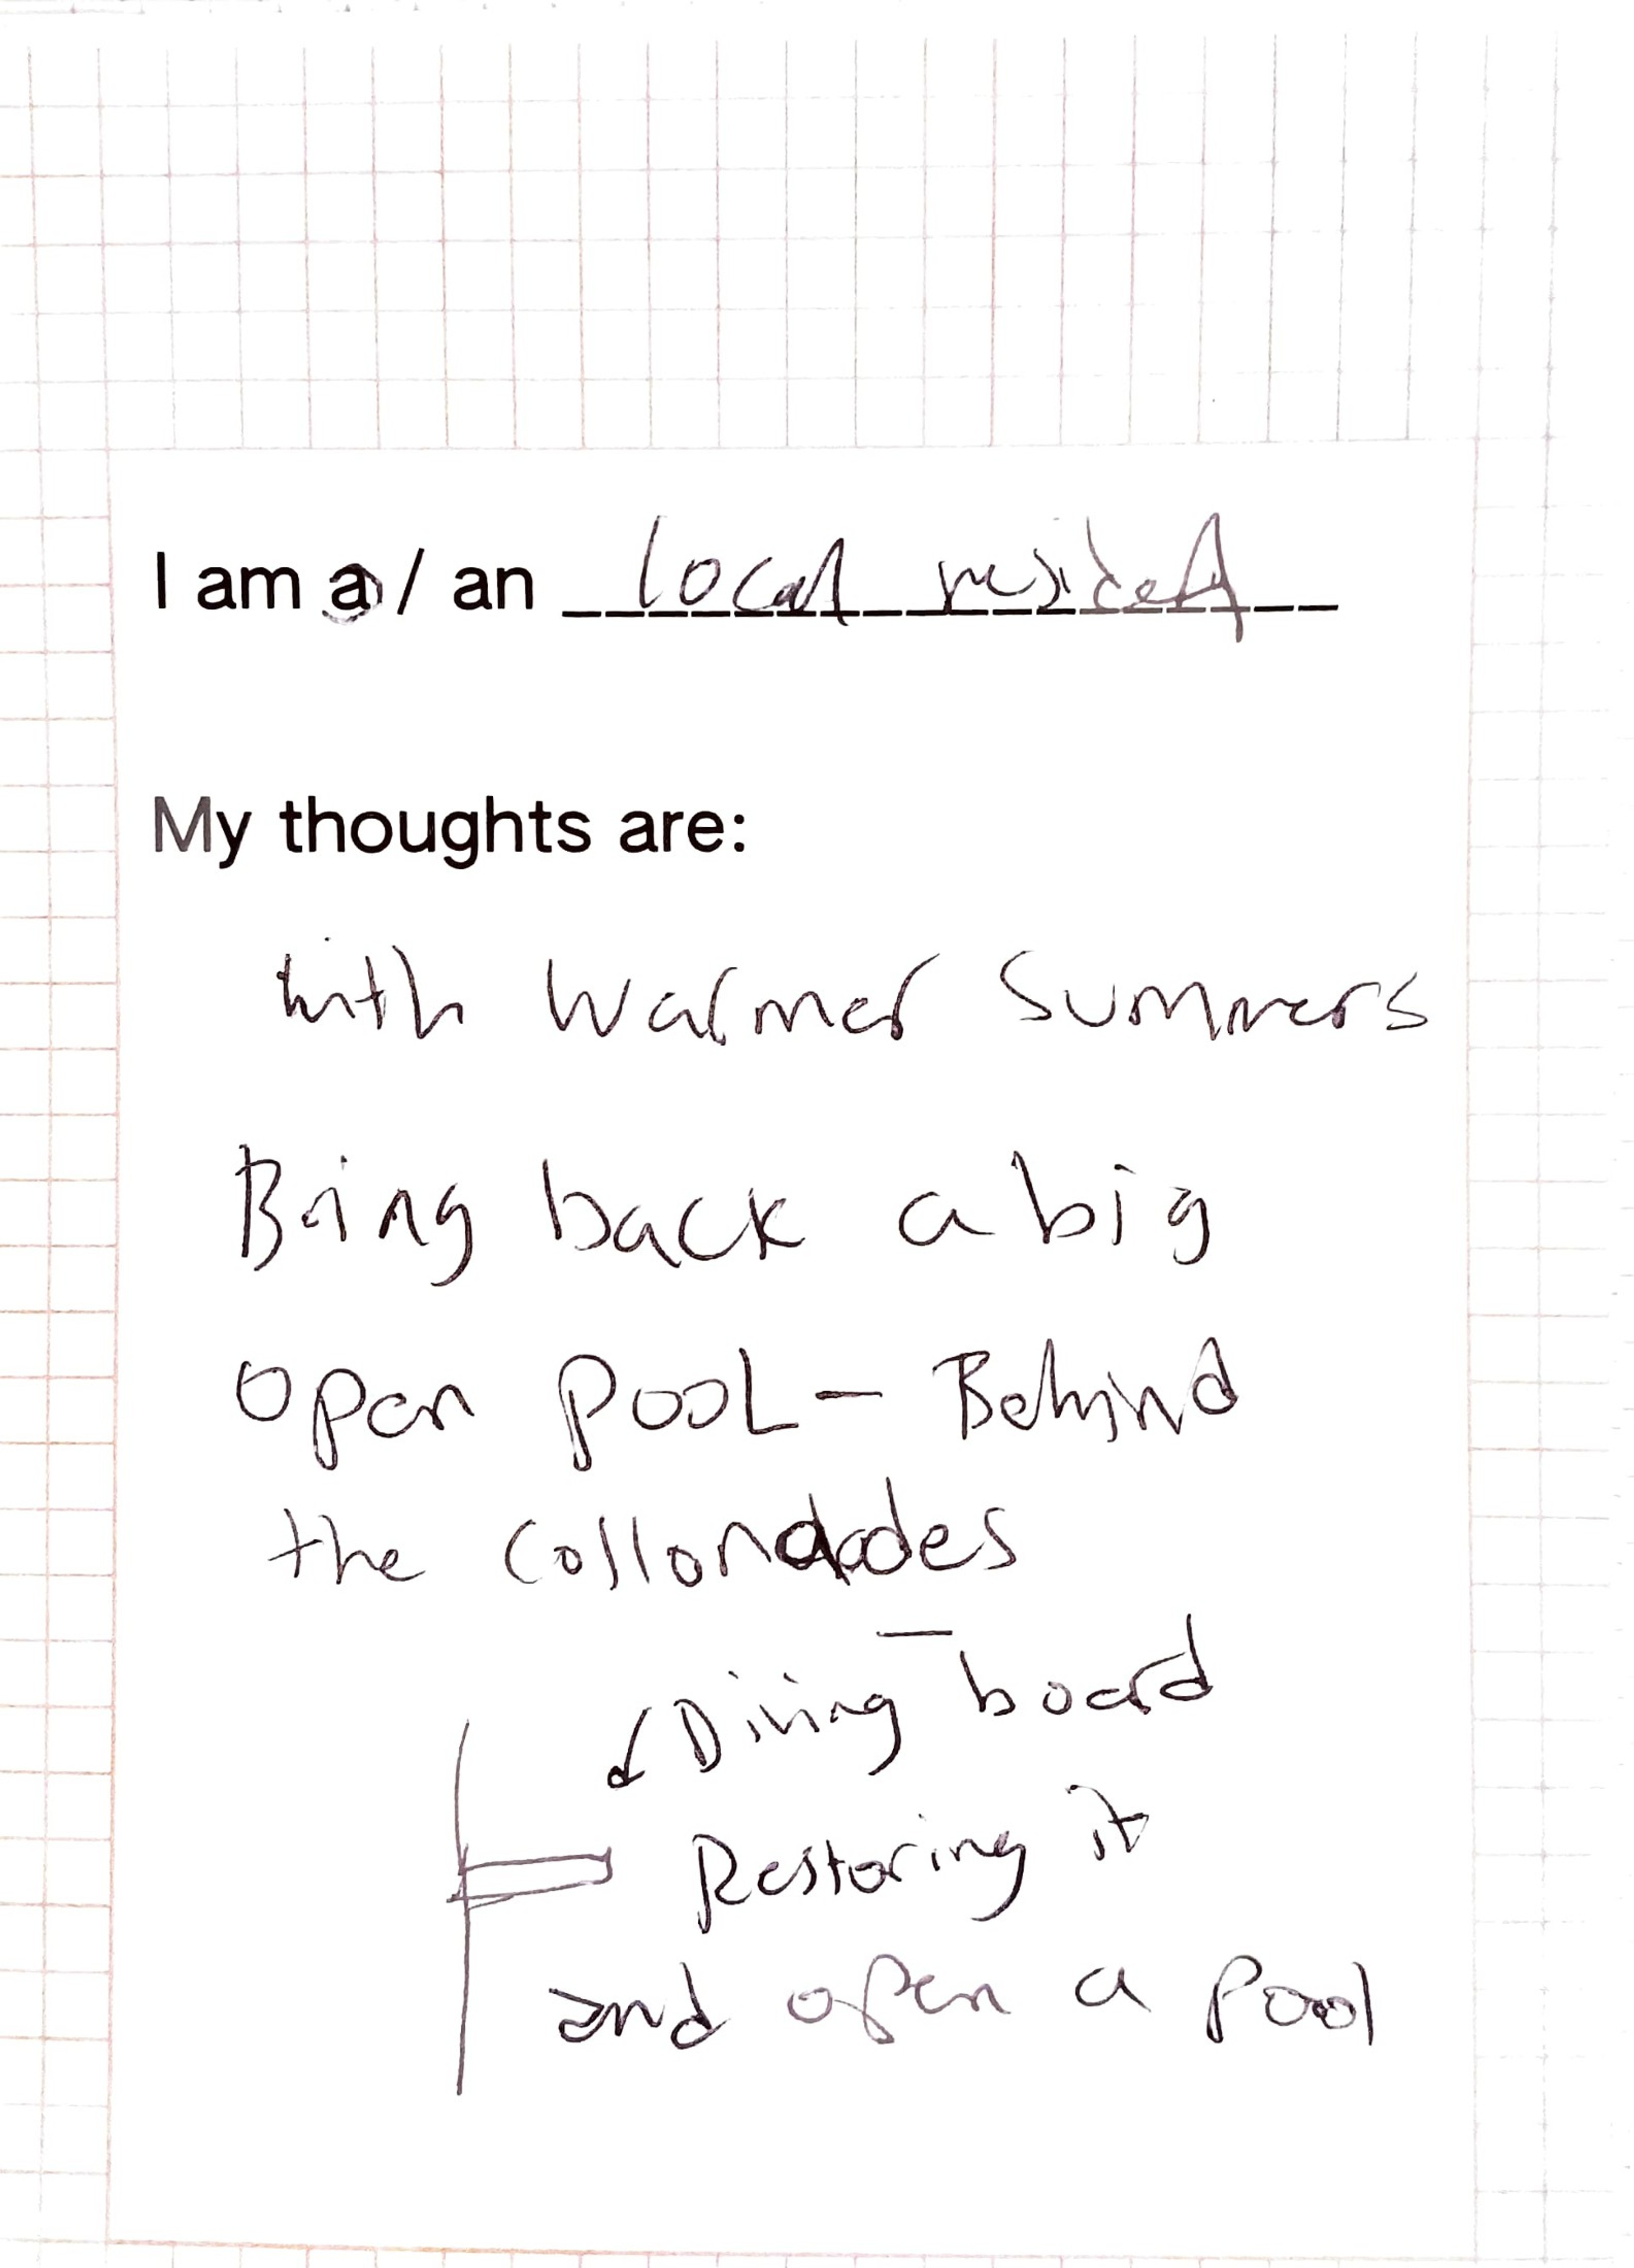 I am a / an local resident
My thoughts are:
with warmer summers
Bring back a big
open pool - Behind
the collonades
Diving board
Restoring it
and open a pool